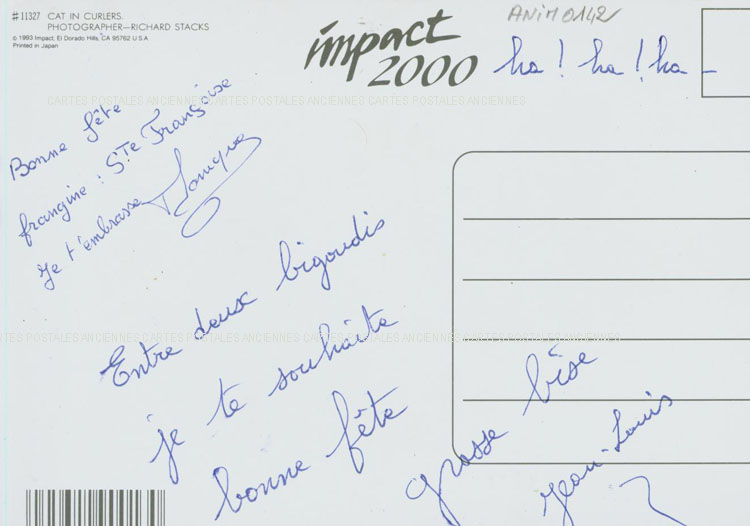 #11327 CAT IN CURLERS.
PHOTOGRAPHER—RICHARD STACKS
© 1993 Impact, El Dorado Hills, CA 95762 U.S.A.
Printed in Japan
impact
2000
ANIM 0142
ha! ha! ha
CARTES POSTALES ANCIENNES CARTES POSTALES ANCIENNES CARTES POSTALES ANCIENNES
Bonne fête
frangine : Ste Françoise
Je t'embrasse
Entre deux bigoudis
je te souhaite
bonne fête
CARTES POSTALES ANCIENNES CARTES POSTALES ANCIENNES CARTES POSTALES ANCIENNES CARTES POSTALES ANCIENNES
grosse bise
Jean-Louis